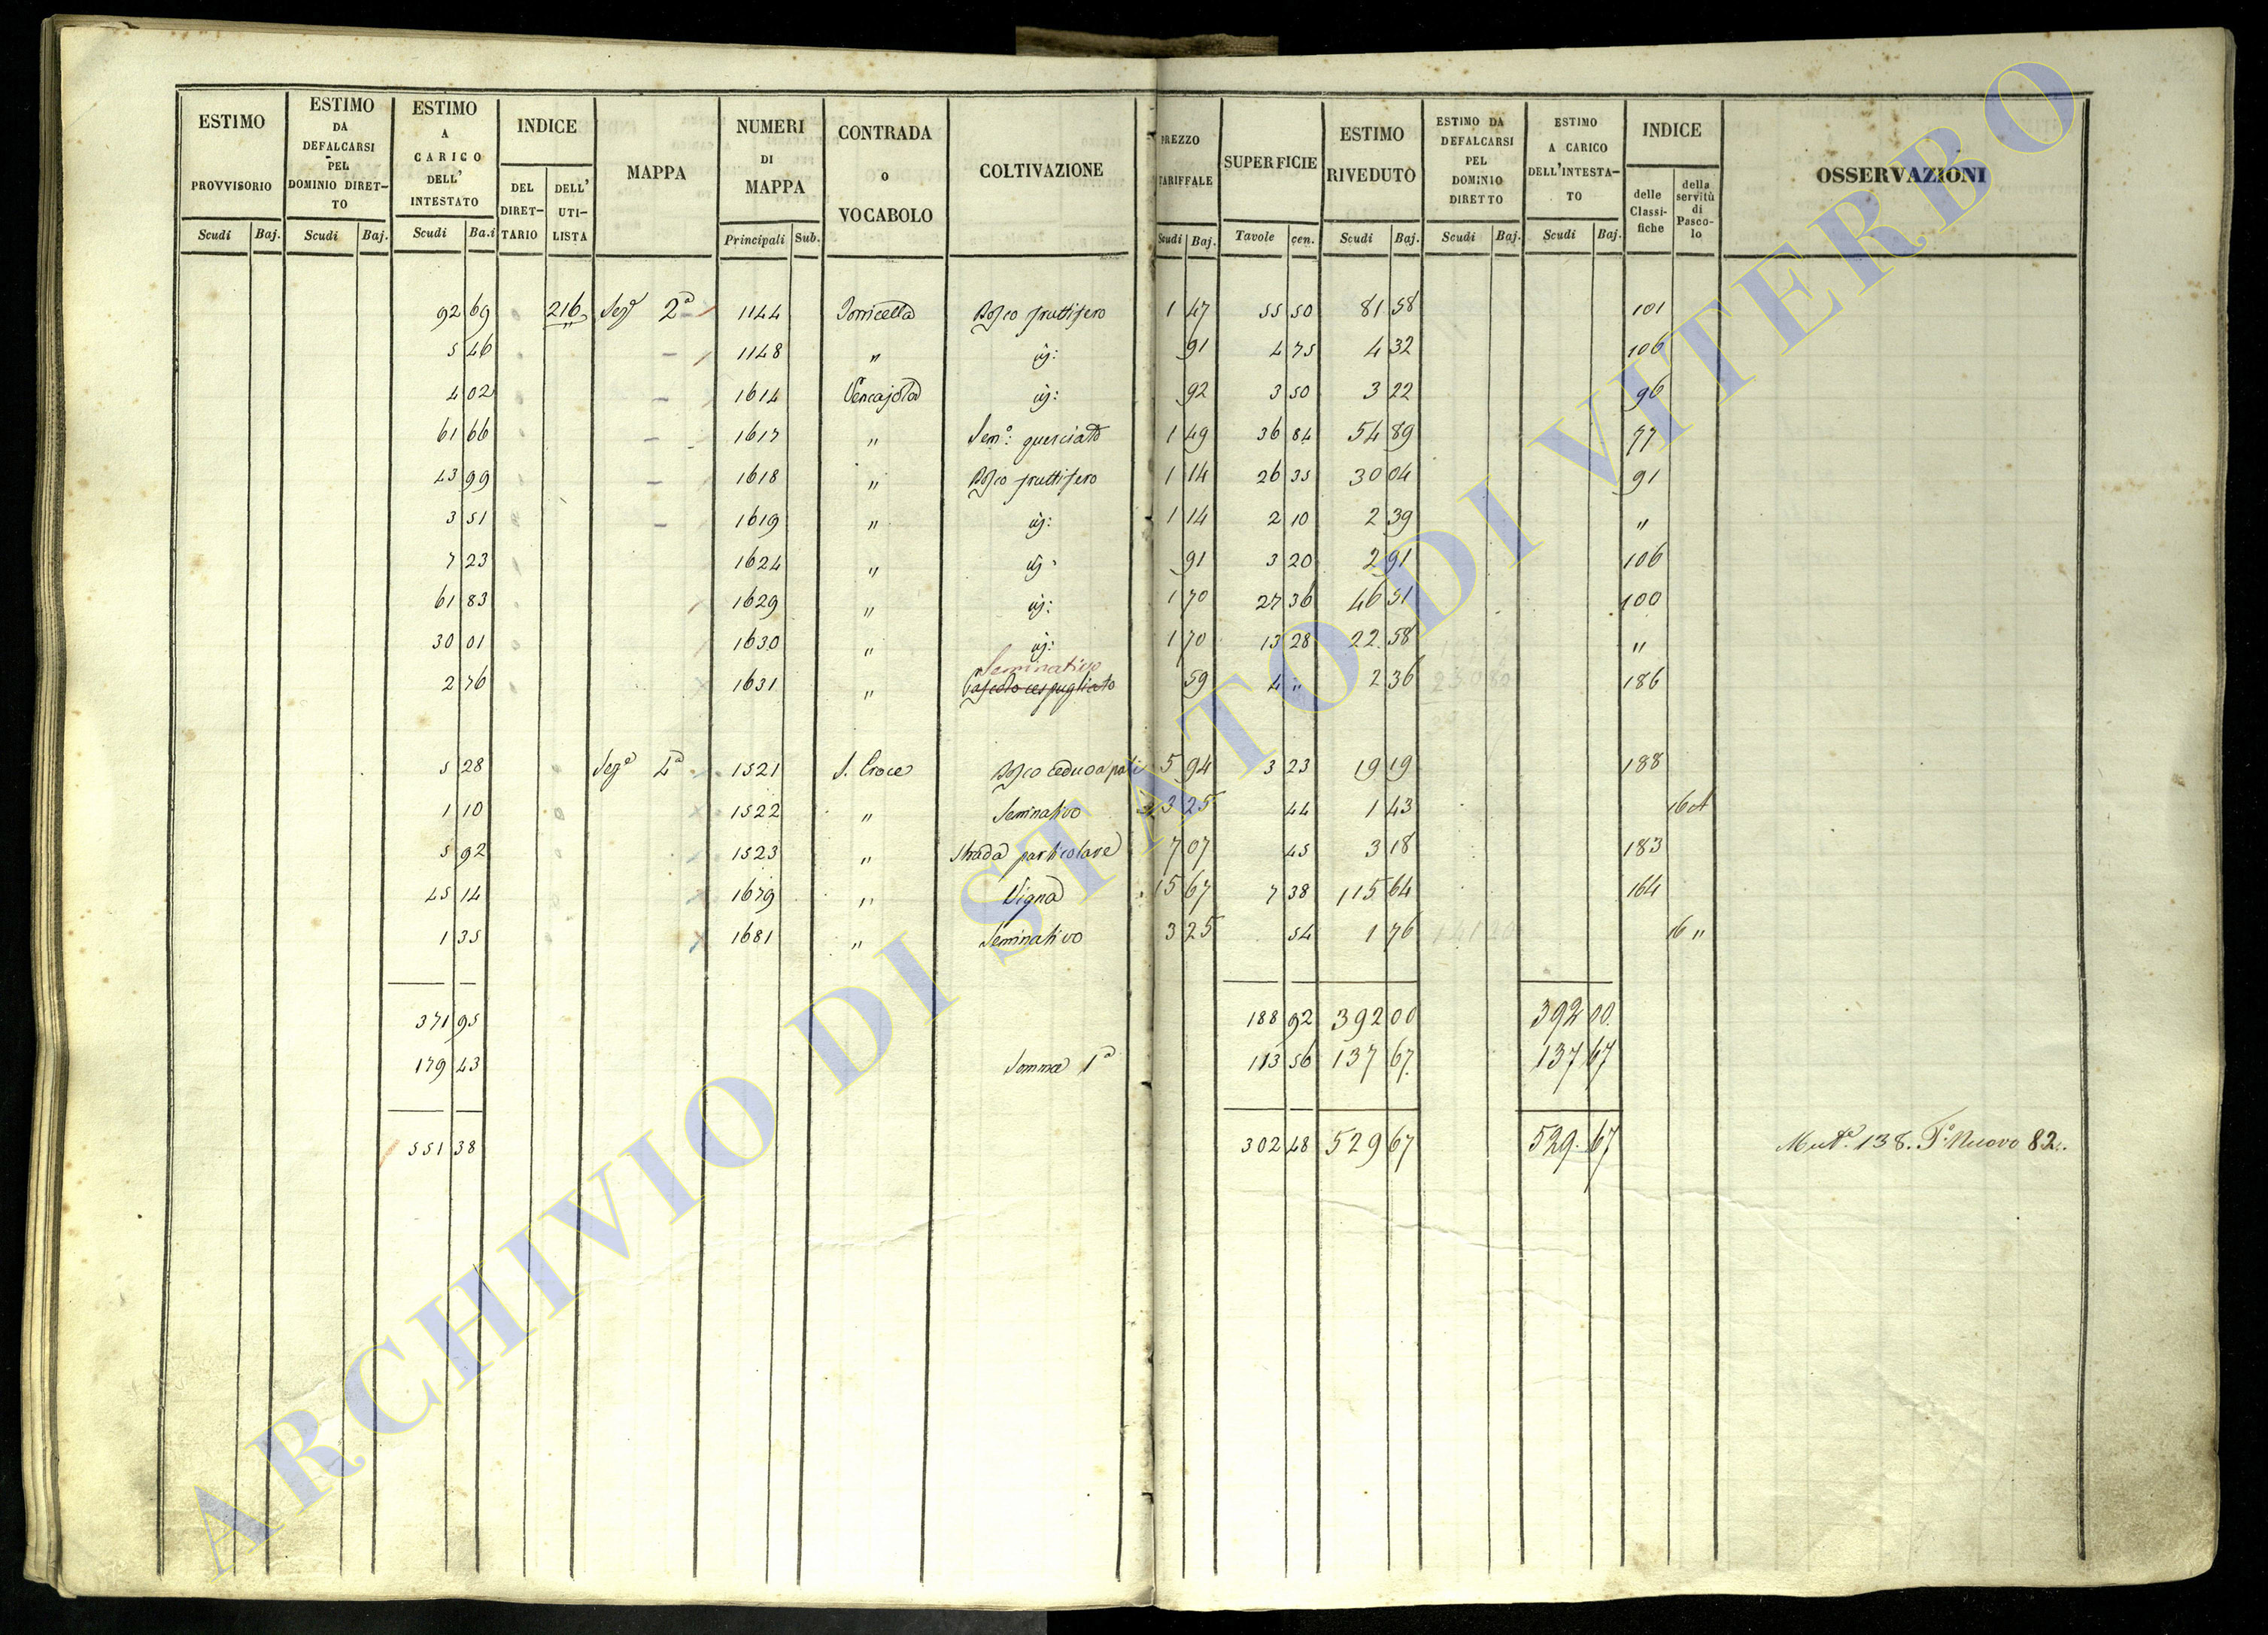 ESTIMO PROVVISORIO | ESTIMO DA DEFALCARSI PEL DOMINIO DIRET-TO | ESTIMO A CARICO DELL' INTESTATO | INDICE | MAPPA | NUMERI DI MAPPA | CONTRADA O VOCABOLO | COLTIVAZIONE | PREZZO TARIFFALE | SUPERFICIE | ESTIMO RIVEDUTO | ESTIMO DA DEFALCARSI PEL DOMINIO DIRETTO | ESTIMO A CARICO DELL'INTESTA-TO | INDICE | OSSERVAZIONI
Scudi | Baj. | Scudi | Baj. | Scudi | Ba.i | DEL DIRET-TARIO | DELL' UTI-LISTA | Principali | Sub. | Scudi | Baj. | Tavole | cen. | Scudi | Baj. | Scudi | Baj. | Scudi | Baj. | delle Classi-fiche | della servitù di Pasco-lo
92 69 | 216 | Sezª 2ª | 1144 | Torricella | Bosco fruttifero | 1 47 | 55 50 | 81 58 | 101
5 46 | 1148 | " | id: | 91 | 4 75 | 4 32 | 106
4 02 | 1614 | id: | 92 | 3 50 | 3 22 | 96
61 66 | 1617 | " | Semº: querciato | 1 49 | 36 84 | 54 89 | 77
43 99 | 1618 | " | Bosco fruttifero | 1 14 | 26 35 | 30 04 | 91
3 51 | 1619 | " | id: | 1 14 | 2 10 | 2 39 | "
7 23 | 1624 | " | id: | 91 | 3 20 | 2 91 | 106
61 83 | 1629 | " | id: | 1 70 | 27 36 | 46 51 | 100
30 01 | 1630 | " | id: | 1 70 | 13 28 | 22 58 | "
Seminativo
2 76 | 1631 | " | Pascolo cespugliato | 59 | 4 " | 2 36 | 186
5 28 | Sezª 4ª | 1521 | S. Croce | Bosco ceduo a pali | 5 94 | 3 23 | 19 19 | 188
1 10 | 1522 | " | Seminativo | 3 25 | 44 | 1 43 | 16 A
5 92 | 1523 | " | Strada particolare | 7 07 | 45 | 3 18 | 183
45 14 | 1679 | " | Vigna | 15 67 | 7 38 | 115 64 | 164
1 35 | 1681 | " | Seminativo | 3 25 | 54 | 1 76 | 16 "
371 95 | 188 92 | 392 00 | 392 00
179 43 | Somma 1ª | 113 56 | 137 67 | 137 67
551 38 | 302 48 | 529 67 | 529 67 | Mutª. 138. Tº Nuovo 82.
ARCHIVIO DI STATO DI VITERBO